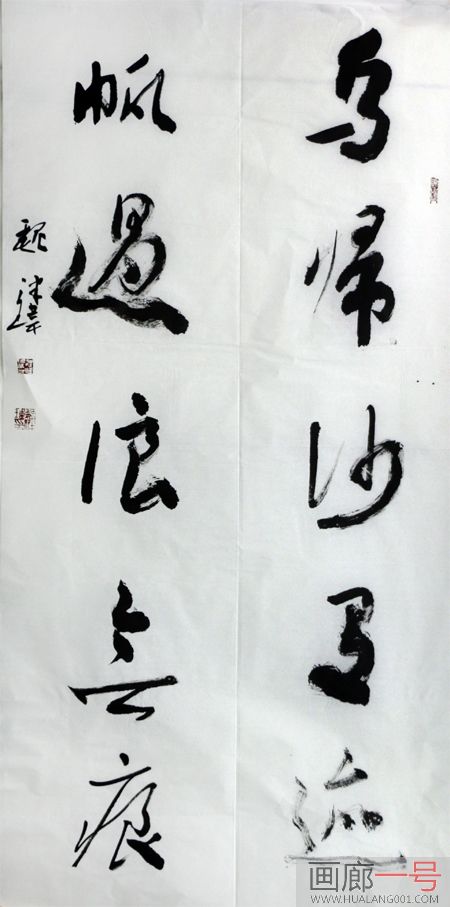 鸟帰沙有迹
帆過浪無痕
魏
画廊一号
WWW.HUALANG001.COM